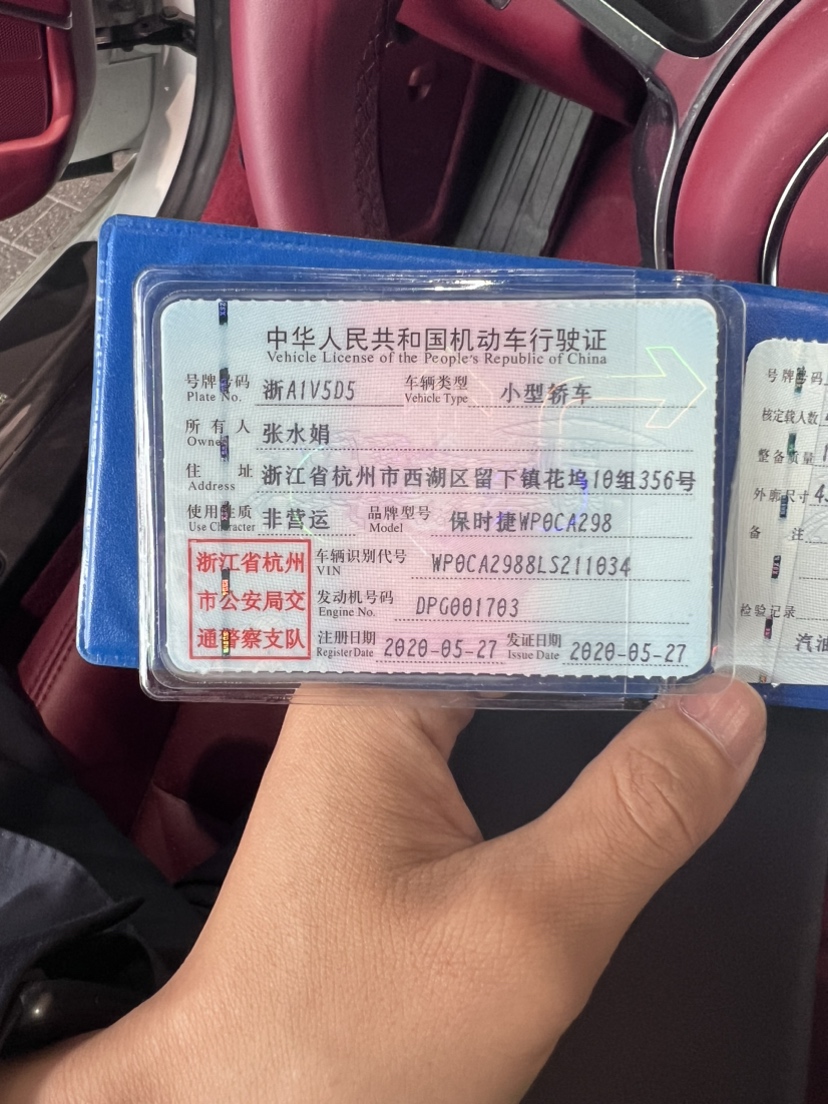 中华人民共和国机动车行驶证
Vehicle License of the People's Republic of China
号牌号码 浙A1V5D5 车辆类型 小型轿车
Plate No. Vehicle Type
所有人 张水娟
Owner
住址 浙江省杭州市西湖区留下镇花坞10组356号
Address
使用性质 非营运 品牌型号 保时捷WP0CA298
Use Character Model
浙江省杭州
市公安局交
通警察支队
车辆识别代号 WP0CA2988LS211034
VIN
发动机号码 DPG001703
Engine No.
注册日期 2020-05-27 发证日期 2020-05-27
Register Date Issue Date
号牌号码
核定载人数
整备质量
外廓尺寸
备注
检验记录
汽油